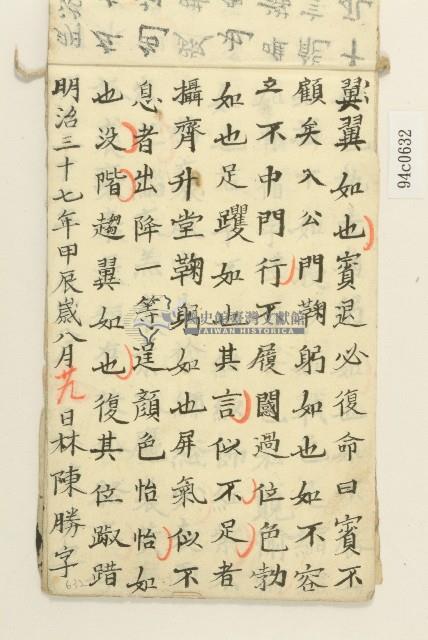 翼翼如也賓退必復命曰賓不
顧矣入公門鞠躬如也如不容
立不中門行不履閾過位色勃
如也足躩如也其言似不足者
攝齊升堂鞠躬如也屏氣似不
息者出降一等逞顏色怡怡如
也没階趨翼如也復其位踧踖
明治三十七年甲辰歲八月廿九日林陳勝字
94c0632
國史館臺灣文獻館
TAIWAN HISTORICA
632